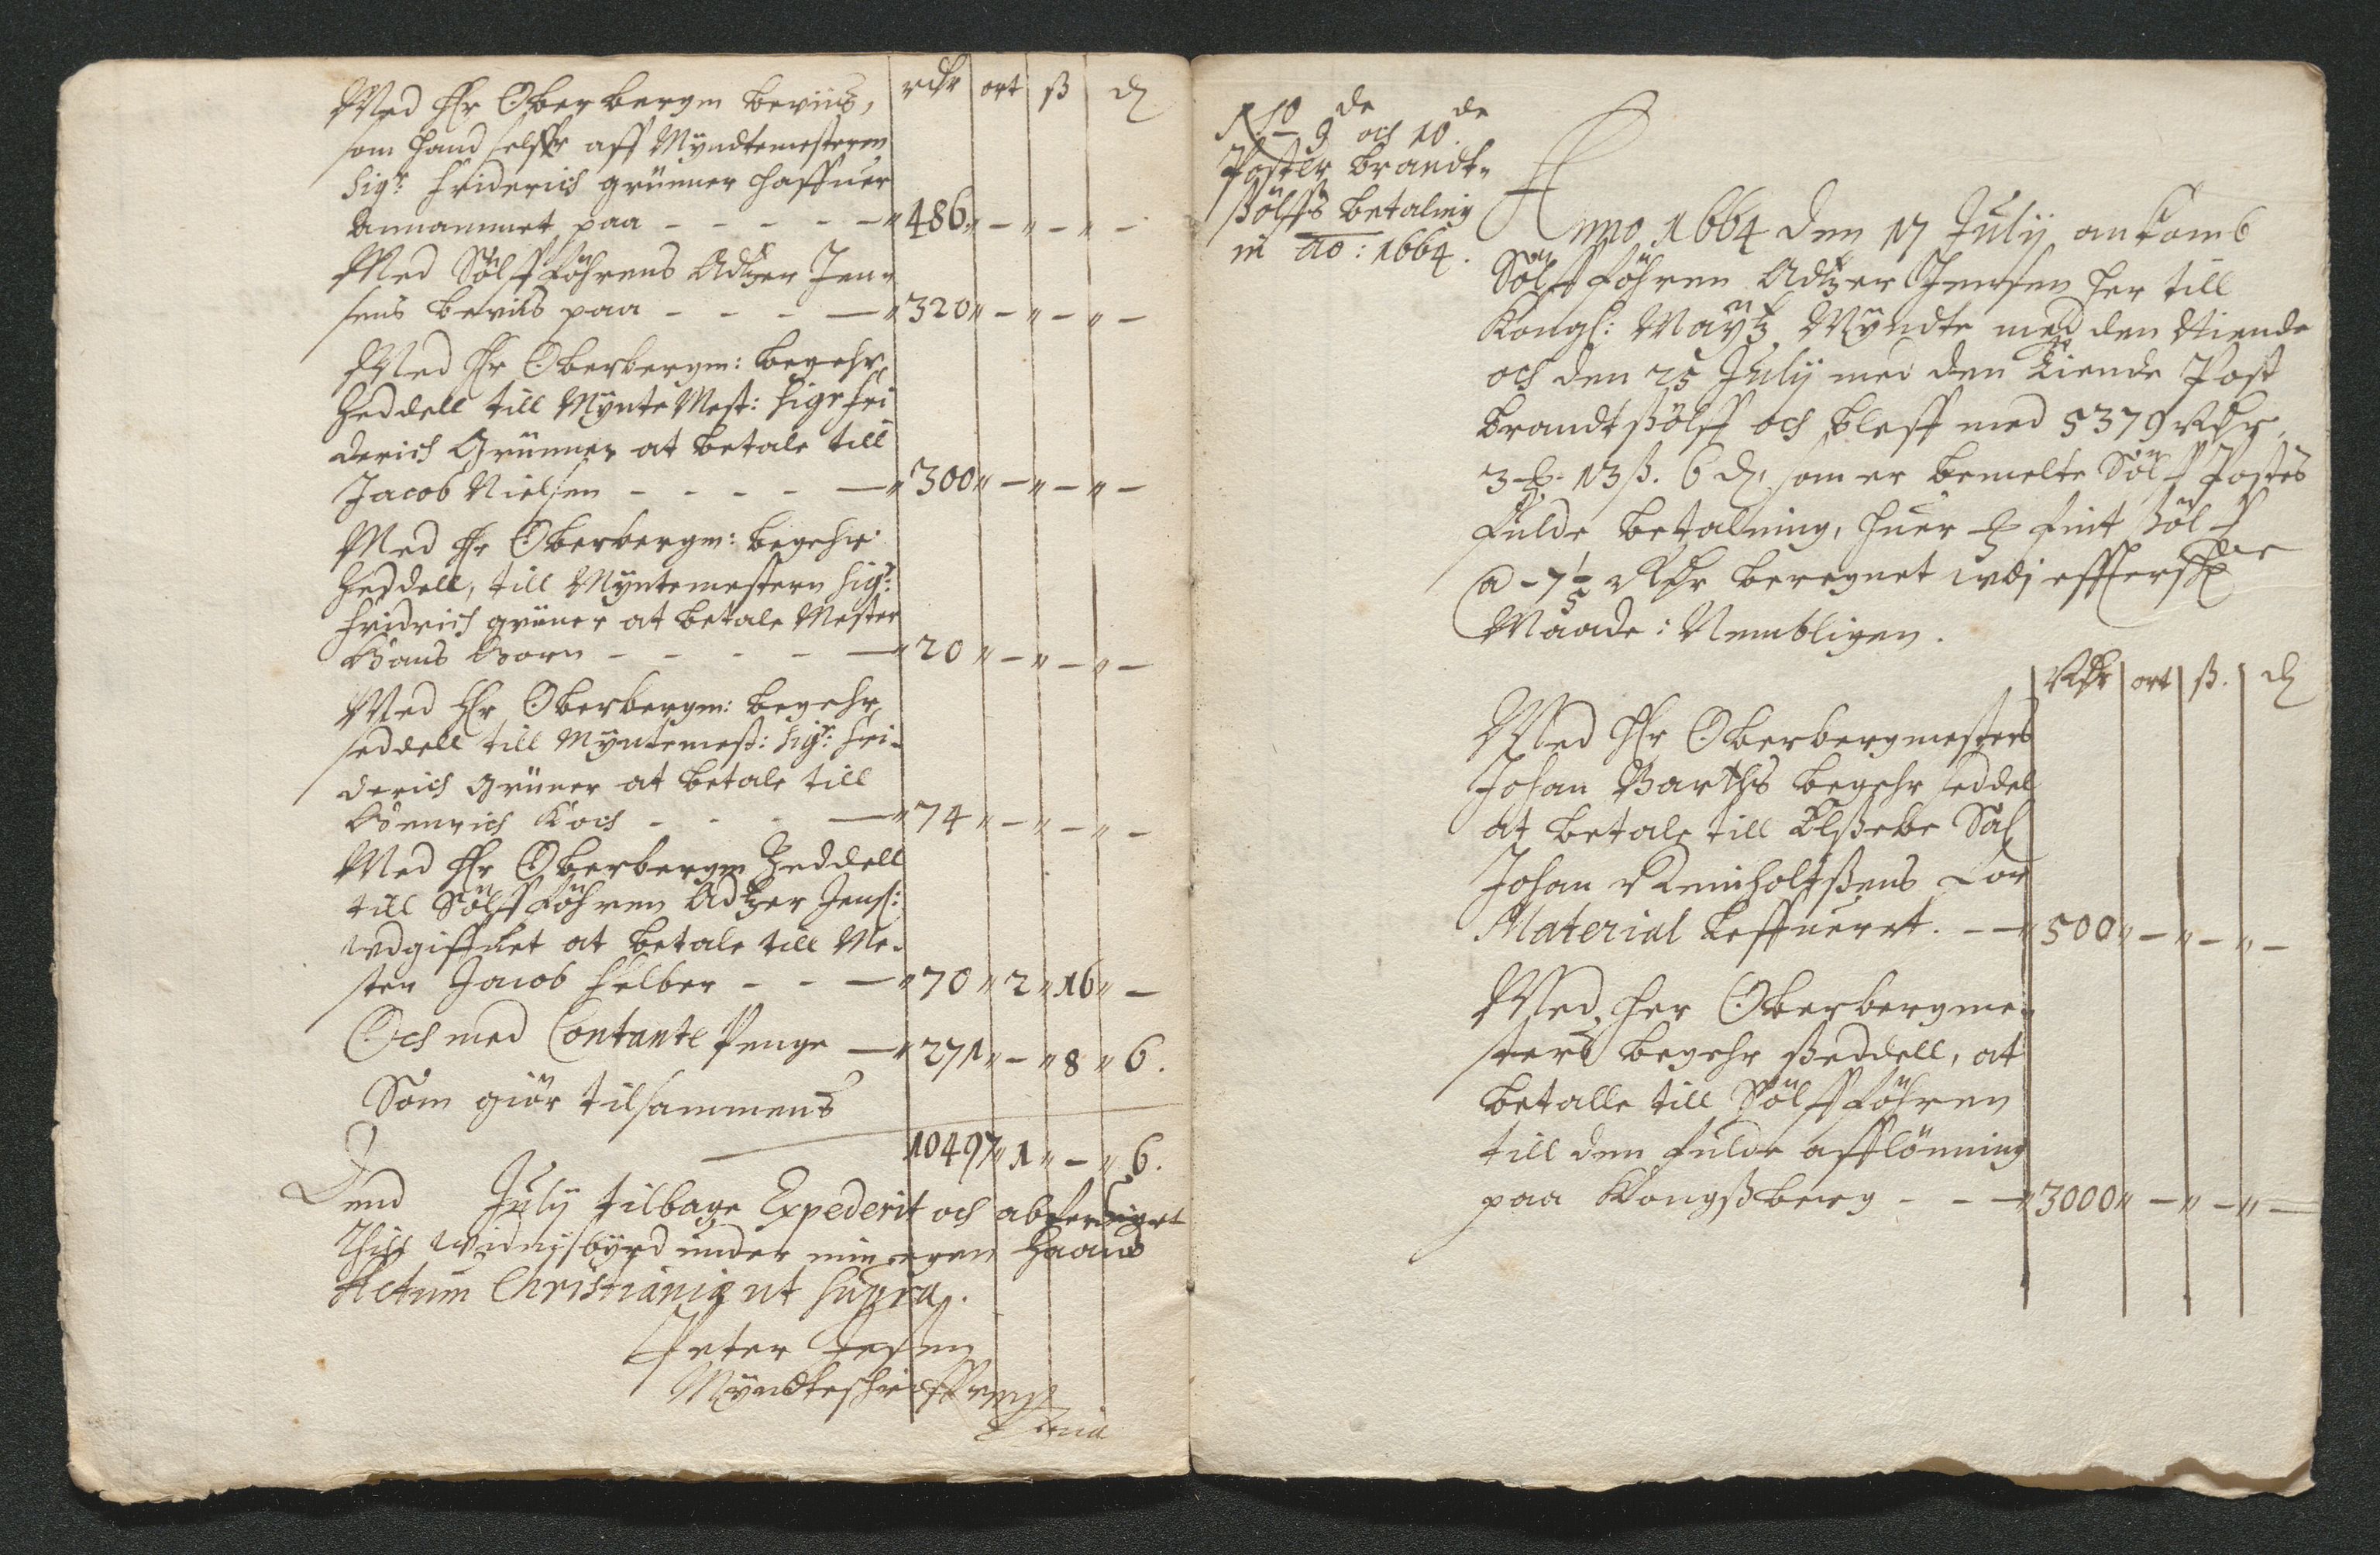 rdr ort ß d
Med Hr Oberbergm beviis,
som hand selffr aff Myndtemesteren
Sigr: Friderich grünner haffuer
Annammet paa - - - - - " 486 " - " - " -
Med Sölfföhrens Adtzer Jen-
sens beviis paa - - - - " 320 " - " - " -
Med Hr Oberbergm: begehr
Zeddell till Mynte Mest: Sigr Fri
derich Grünner at betale till
Jacob Nielsen - - - - - " 300 " - " - " -
Med Hr Oberbergm: begehr
Zeddell, till Myntemestern Sigr:
Fridrich grüner at betale Mester
Hans Born - - - - - " 20 " - " - " -
Med Hr Oberbergm: begehr
seddell till Myntemest: Sigr: Fri-
derich Grüner at betale till
Henrich Koch - - - - " 74 " - " - " -
Med Hr Oberbergm Zeddell
till Sölfföhren Adtzer Jens:
udgiffuet at betale till Me-
ster Jacob Felber - - - " 70 " 2 " 16 " -
Och med Contante Penge - " 271 " - " 8 " 6.
Som giör tilsammens
10497 " 1 " - " 6.
Dend July tilbage Expederit och abferdiget
Thill widnisbyrd under min egen haand
Actum Christianiæ ut supra.
Peter Jessen
Myndteschriffver
9de och 10de
Poster brandt-
sölffs betaling
in ao: 1664.
Anno 1664 den 17 Julij ankomb
Sölfföhren Adtzer Jensen her till
Kongl: Maytz Myndte med den Niende
och den 25 Julij med den Tiende Post
brandt sölff och bleff med 5379 Rdr,
3 13 ß. 6 d, som er bemelte Sölff Postes
fulde betalning, huer fint sölff
a - 7 1/5 Rdr beregnet udj
Maade: Nembligen.
Rdr ort ß. d
Med Hr Oberbergmesters
Johan Barths begehr seddel
at betale till Elsebe Sal
Johan Reinholtsens for
Material leffueret. - - " 500 " - " - " -
Med Her Oberbergme-
sters begehr seddell, at
betalle till Sölfföhren
till den fulde afflönning
paa Kongsberg - - - " 3000 " - " - " -